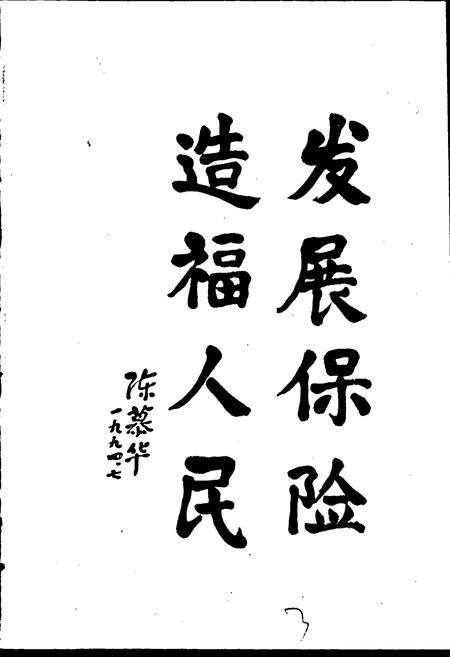 发展保险
造福人民
陈慕华
一九九四.七
3